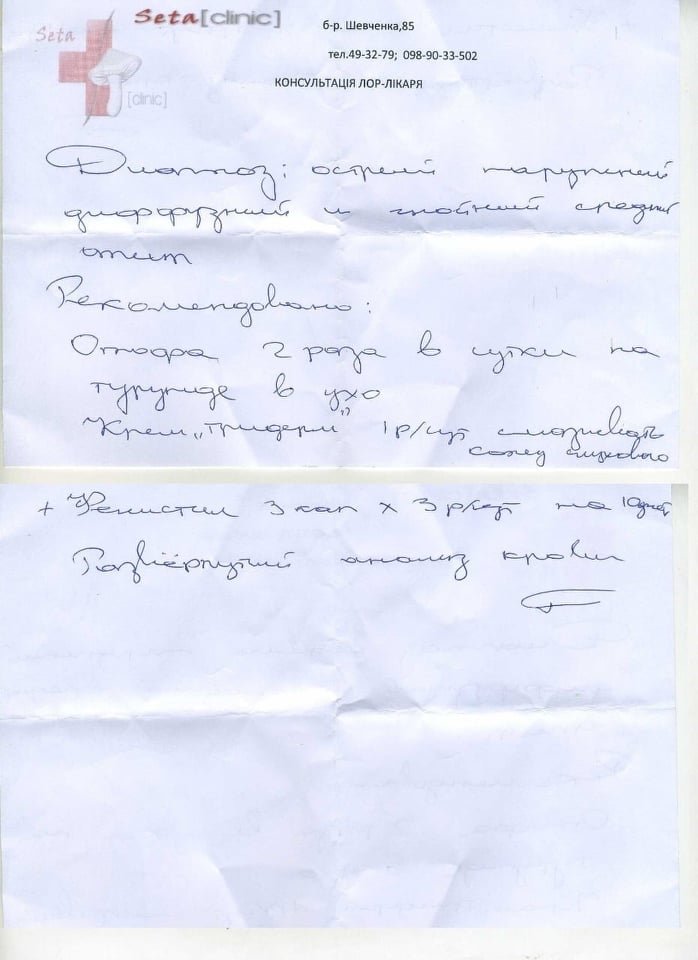 Seta[clinic]
Seta
[clinic]
б-р. Шевченка,85
тел.49-32-79; 098-90-33-502
КОНСУЛЬТАЦІЯ ЛОР-ЛІКАРЯ
Диагноз: острый наружный
диффузний и гнойний средний
отит
Рекомендовано:
Отофа 2 раза в сутки на
турунде в ухо
Крем „Тридерм" 1 р/сут смазивать
слухового
+ Фенистил 3 кап х 3 р/сут на 10 дней
Развёрнутий анализ крови